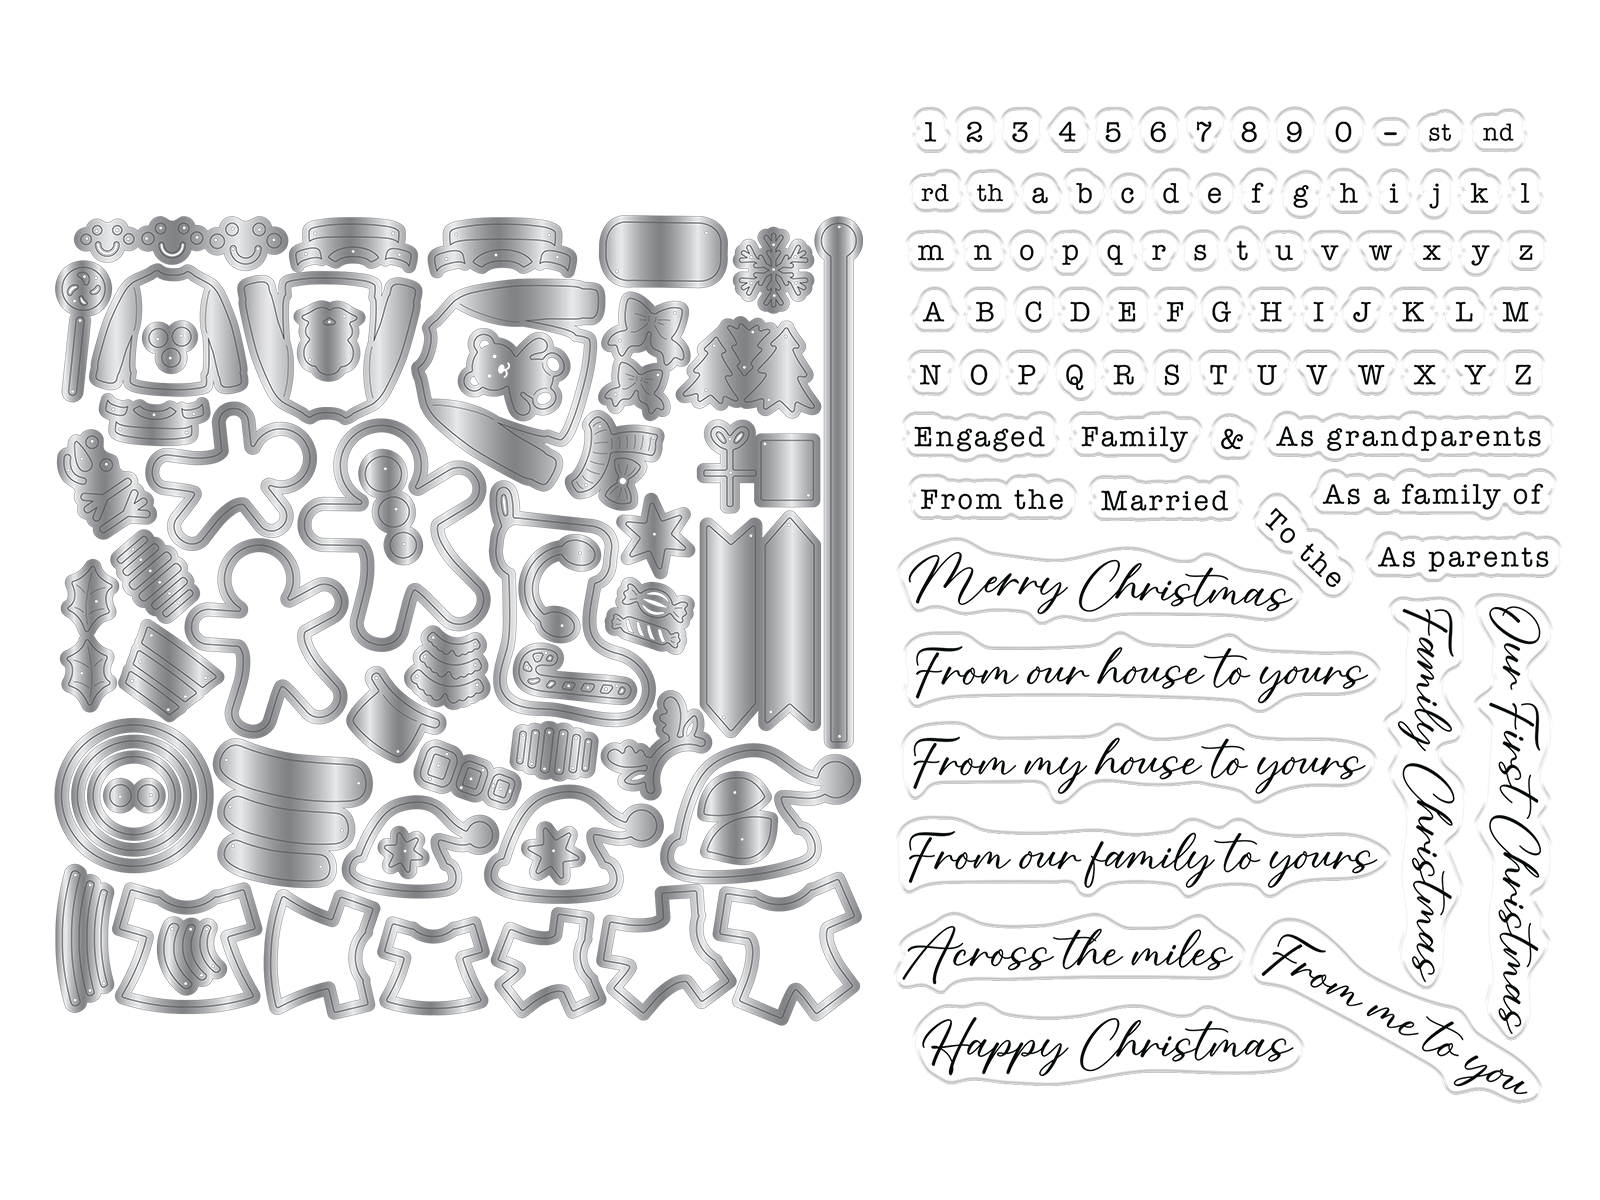 1 2 3 4 5 6 7 8 9 0 - st nd
rd th a b c d e f g h i j k l
m n o p q r s t u v w x y z
A B C D E F G H I J K L M
N O P Q R S T U V W X Y Z
Engaged Family & As grandparents
From the Married To the As a family of
As parents
Merry Christmas
From our house to yours
From my house to yours
From our family to yours
Across the miles
Happy Christmas
From me to you
Family Christmas
Our First Christmas